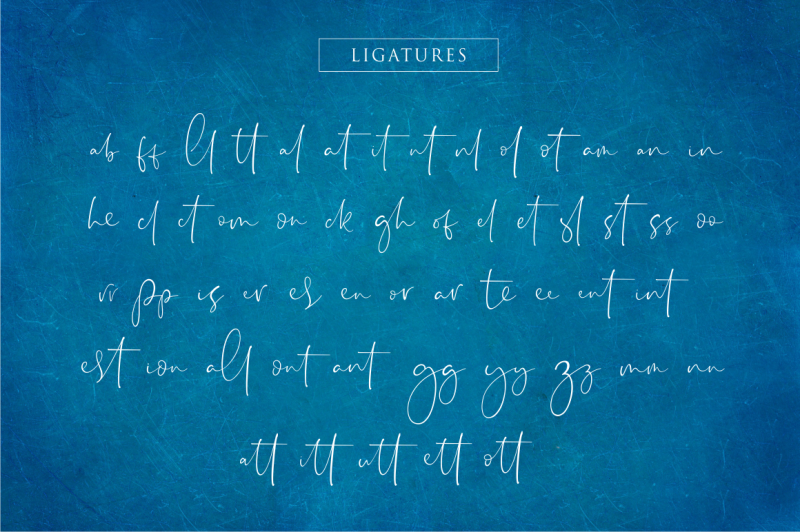 LIGATURES
ab ff ll tt al at it ut ul ol ot am an in
he cl ct om on ck gh of el et sl st ss oo
rr pp is er es en or ar te ee ent int
est ion all ont ant gg yy zz mm nn
att itt utt ett ott